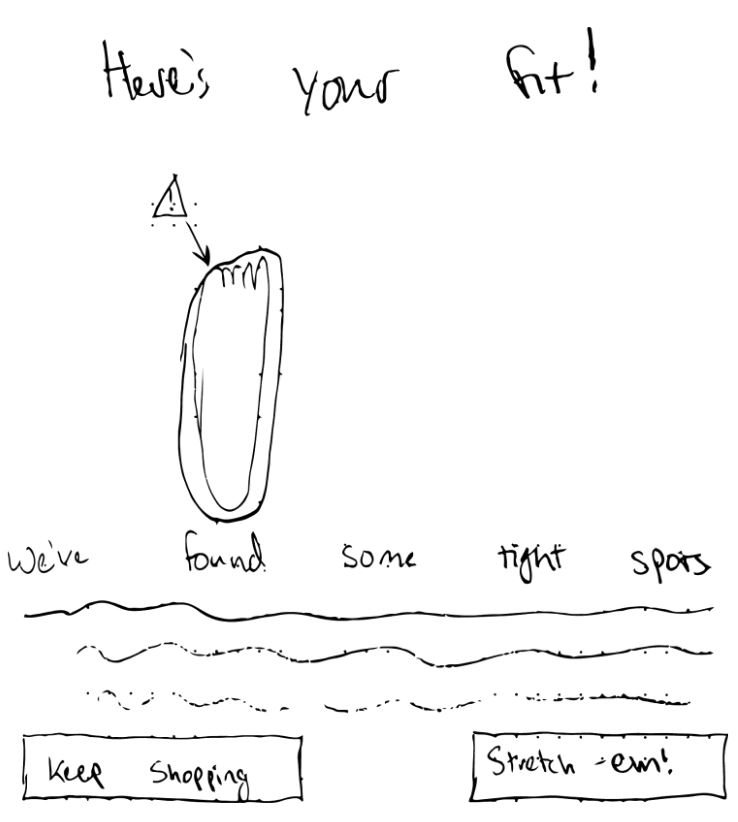 Here's your fit!
!
We've found some tight spots
Keep Shopping
Stretch -em!